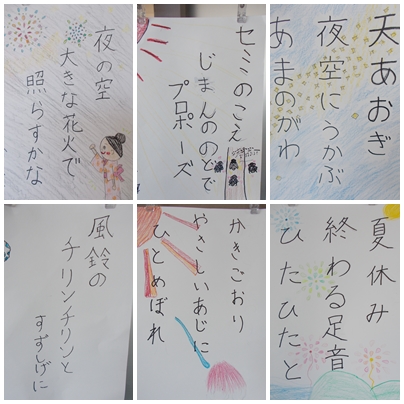 夜の空
大きな花火で
照らすかな
セミのこえ
じまんののどで
プロポーズ
天あおぎ
夜空にうかぶ
あまのがわ
風鈴の
チリンチリンと
すずしげに
かきごおり
やさしいあじに
ひとめぼれ
夏休み
終わる足音
ひたひたと